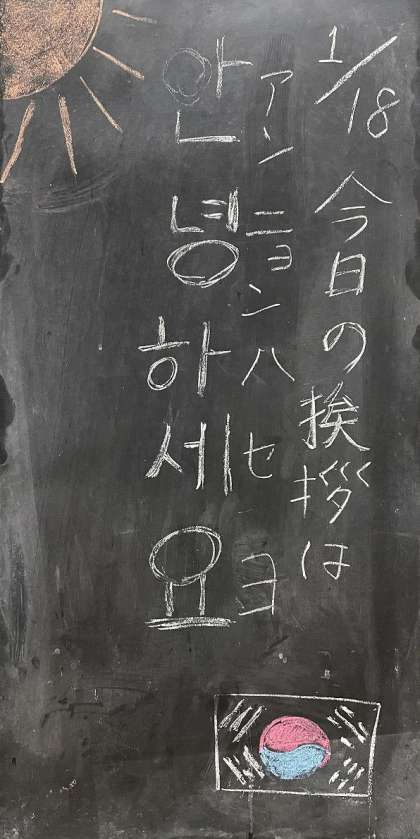 1/18
今日の挨拶は
アンニョンハセヨ
안녕하세요